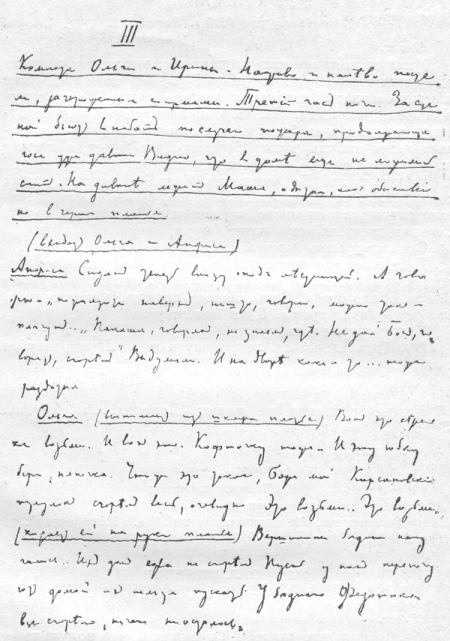 III
Комната Ольги и Ирины. Направо и налѣво посте-
ли, загороженныя ширмами. Третій часъ ночи. За сце-
ной бьютъ въ набатъ по случаю пожара,
уже давно. Видно, что въ домѣ еще не ложились
спать. На диванѣ лежитъ Маша, одѣтая, какъ обыкновен-
но въ черное платье
(входятъ Ольга и Анфиса)
Анфиса Сидятъ теперь внизу подъ лѣстницей. Я гово-
рю – „пожалуйте наверхъ, нешто, говорю, можно такъ –
плачутъ.. „Папаша, говорятъ, не знаемъ, гдѣ. Не дай Богъ, го-
ворятъ, сгорѣлъ" Выдумали. И на дворѣ какіе-то... тоже
раздѣтые
Ольга (вынимаетъ изъ шкапа платья) Вотъ это сѣрень-
кое возьми. И вотъ это. Кофточку тоже.. И эту юбку
бери, нянечка. Что же это такое, Боже мой Кирсановскій
переулокъ сгорѣлъ весь, очевидно Это возьми.. Это возьми..
(кидаетъ ей на руки платье) Вершинины бѣдные напу-
гались.. Ихъ домъ едва не сгорѣлъ Пусть у насъ переночу-
ютъ домой ихъ нельзя пускать У бѣднаго Ѳедотика
все сгорѣло, ничего не осталось.